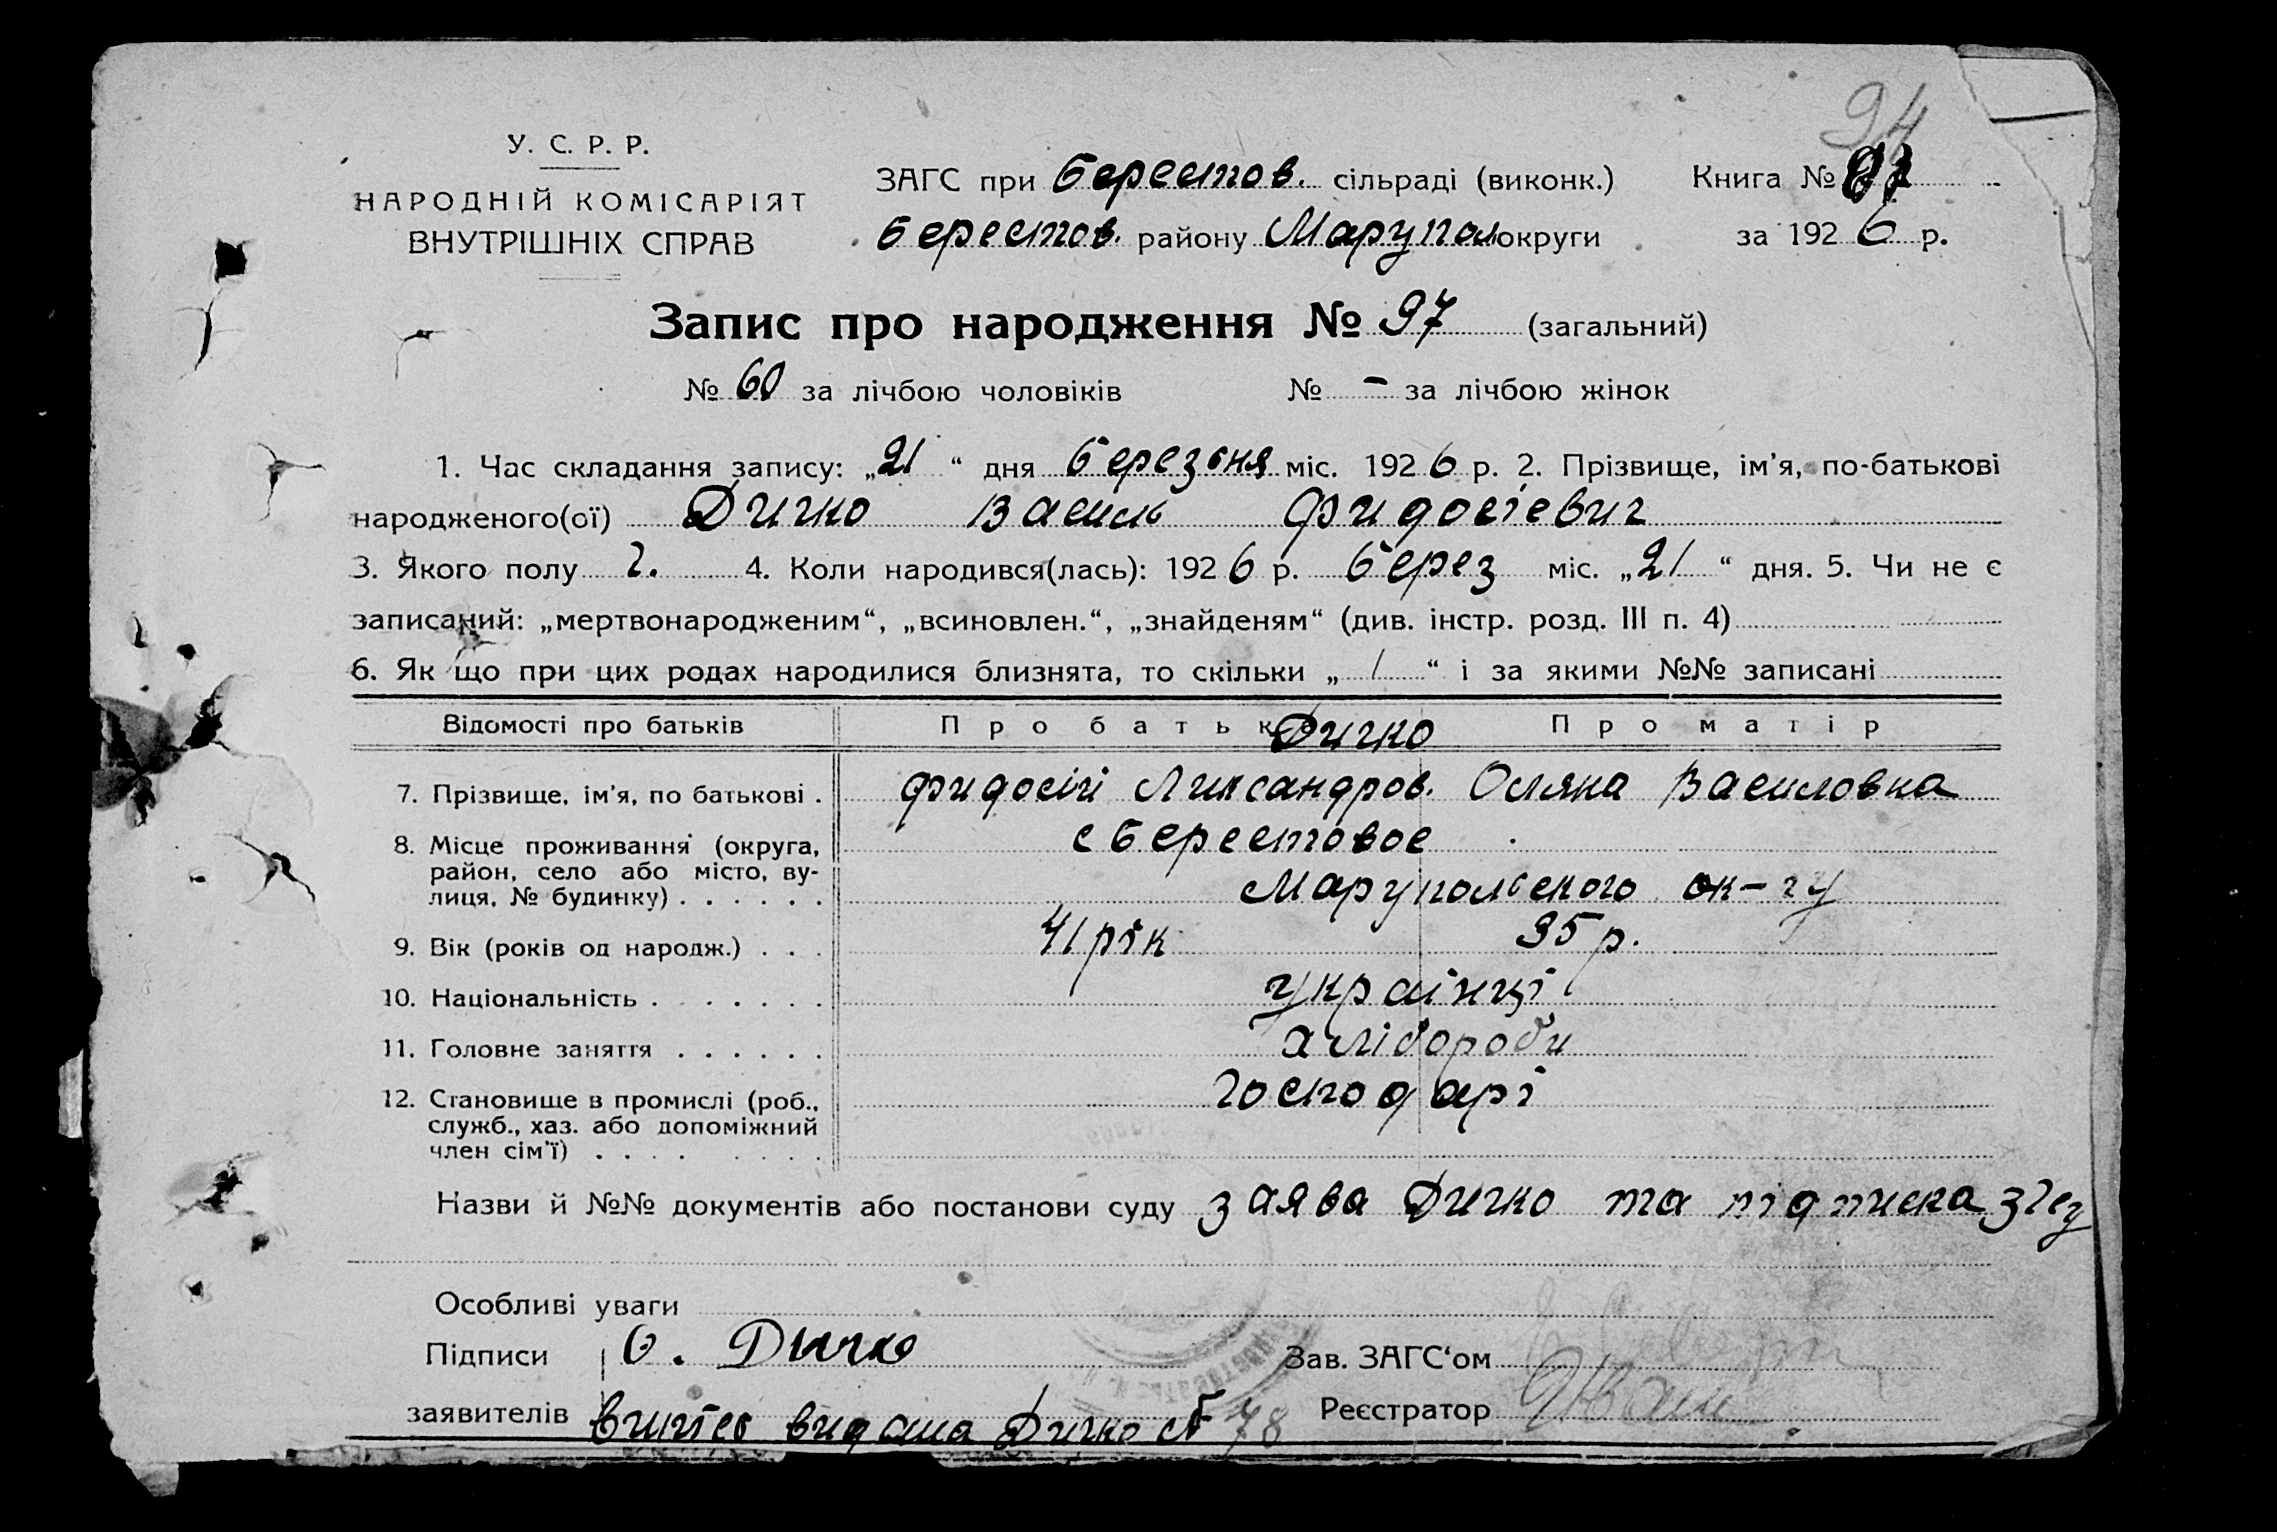 94
У. С. Р. Р.
НАРОДНІЙ КОМІСАРІЯТ
ВНУТРІШНІХ СПРАВ
ЗАГС при Берестов. сільраді (виконк.) Книга №
Берестов. району Маруполь округи за 1926 р.
Запис про народження № 97 (загальний)
№ 60 за лічбою чоловіків № – за лічбою жінок
1. Час складання запису: „21“ дня березоня міс. 1926 р. 2. Прізвище, ім’я, по-батькові
народженого(ої) Дичко Василь Фидосіевич
3. Якого полу ч. 4. Коли народився(лась): 1926 р. берез міс. „21“ дня. 5. Чи не є
записаний: „мертвонародженим“, „всиновлен.“, „знайденям“ (див. інстр. розд. III п. 4)
6. Як що при цих родах народилися близнята, то скільки „1“ і за якими №№ записані
Відомості про батьків Про батька Про матір
Дичко
7. Прізвище, ім’я, по батькові . Фидосій Ликсандров. Оляна Василовка
8. Місце проживання (округа, с Берестовое
район, село або місто, ву-
лиця, № будинку) . . . . . . Марупольского ок-гу
9. Вік (років од народж.) . . . 41 рік 35 р.
10. Національність . . . . . . . українці
11. Головне заняття . . . . . . хлібороби
12. Становище в промислі (роб., господарі
служб., хаз. або допоміжний
член сім’ї) . . . . . . . .
Назви й №№ документів або постанови суду заява Дичко та підписка
Особливі уваги
Підписи О. Дичко Зав. ЗАГС‘ом
заявителів видана Дичко № 78 Реєстратор